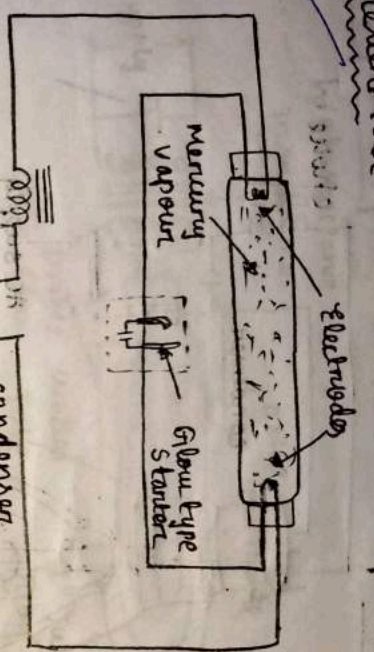 Electrodes
Mercury
vapour
Glow type
Starter
condenser